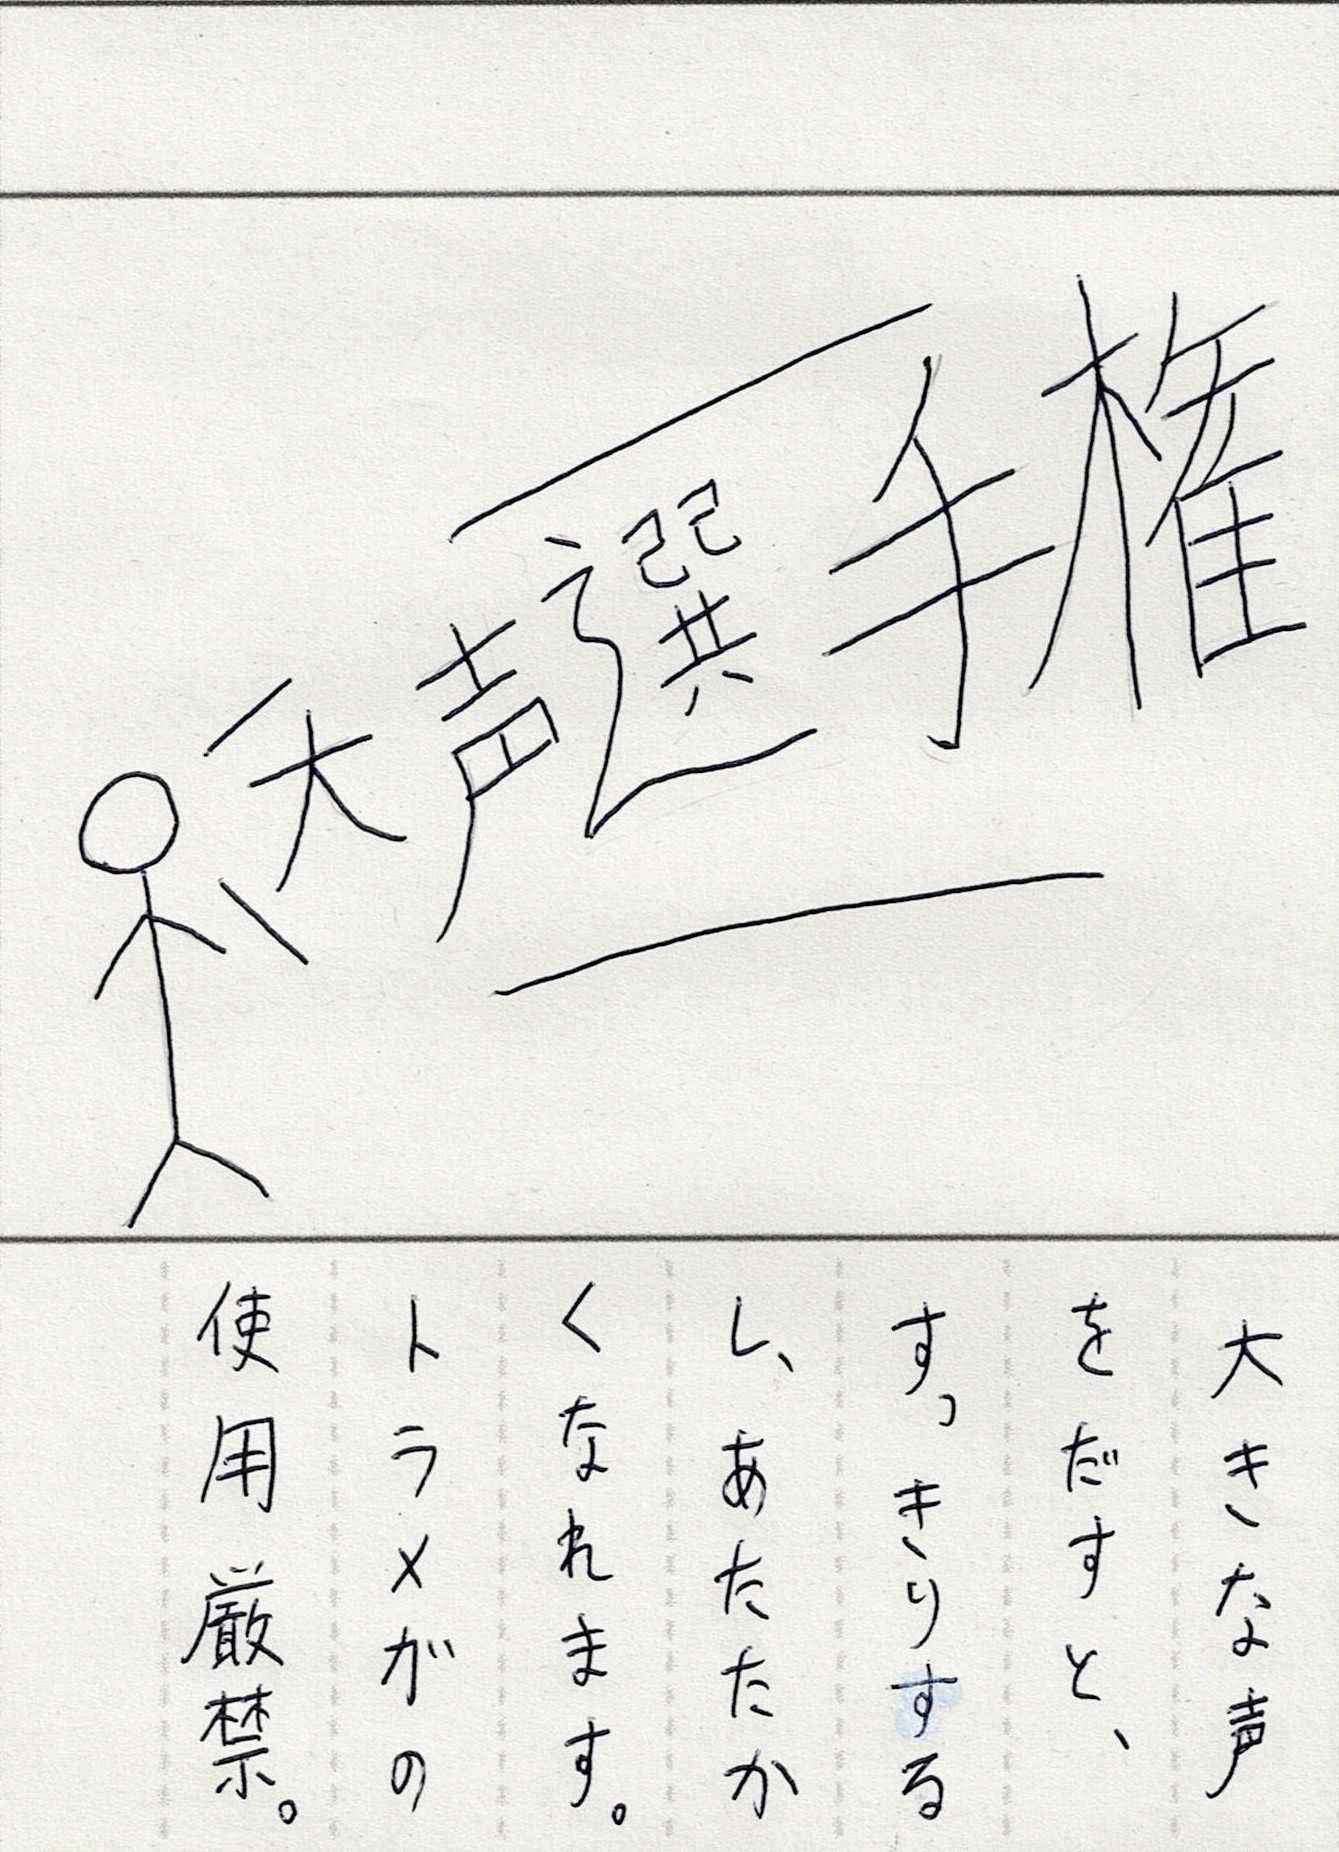 大声選手権
大きな声
をだすと、
すっきりする
し、あたたか
くなれます。
トラメガの
使用厳禁。